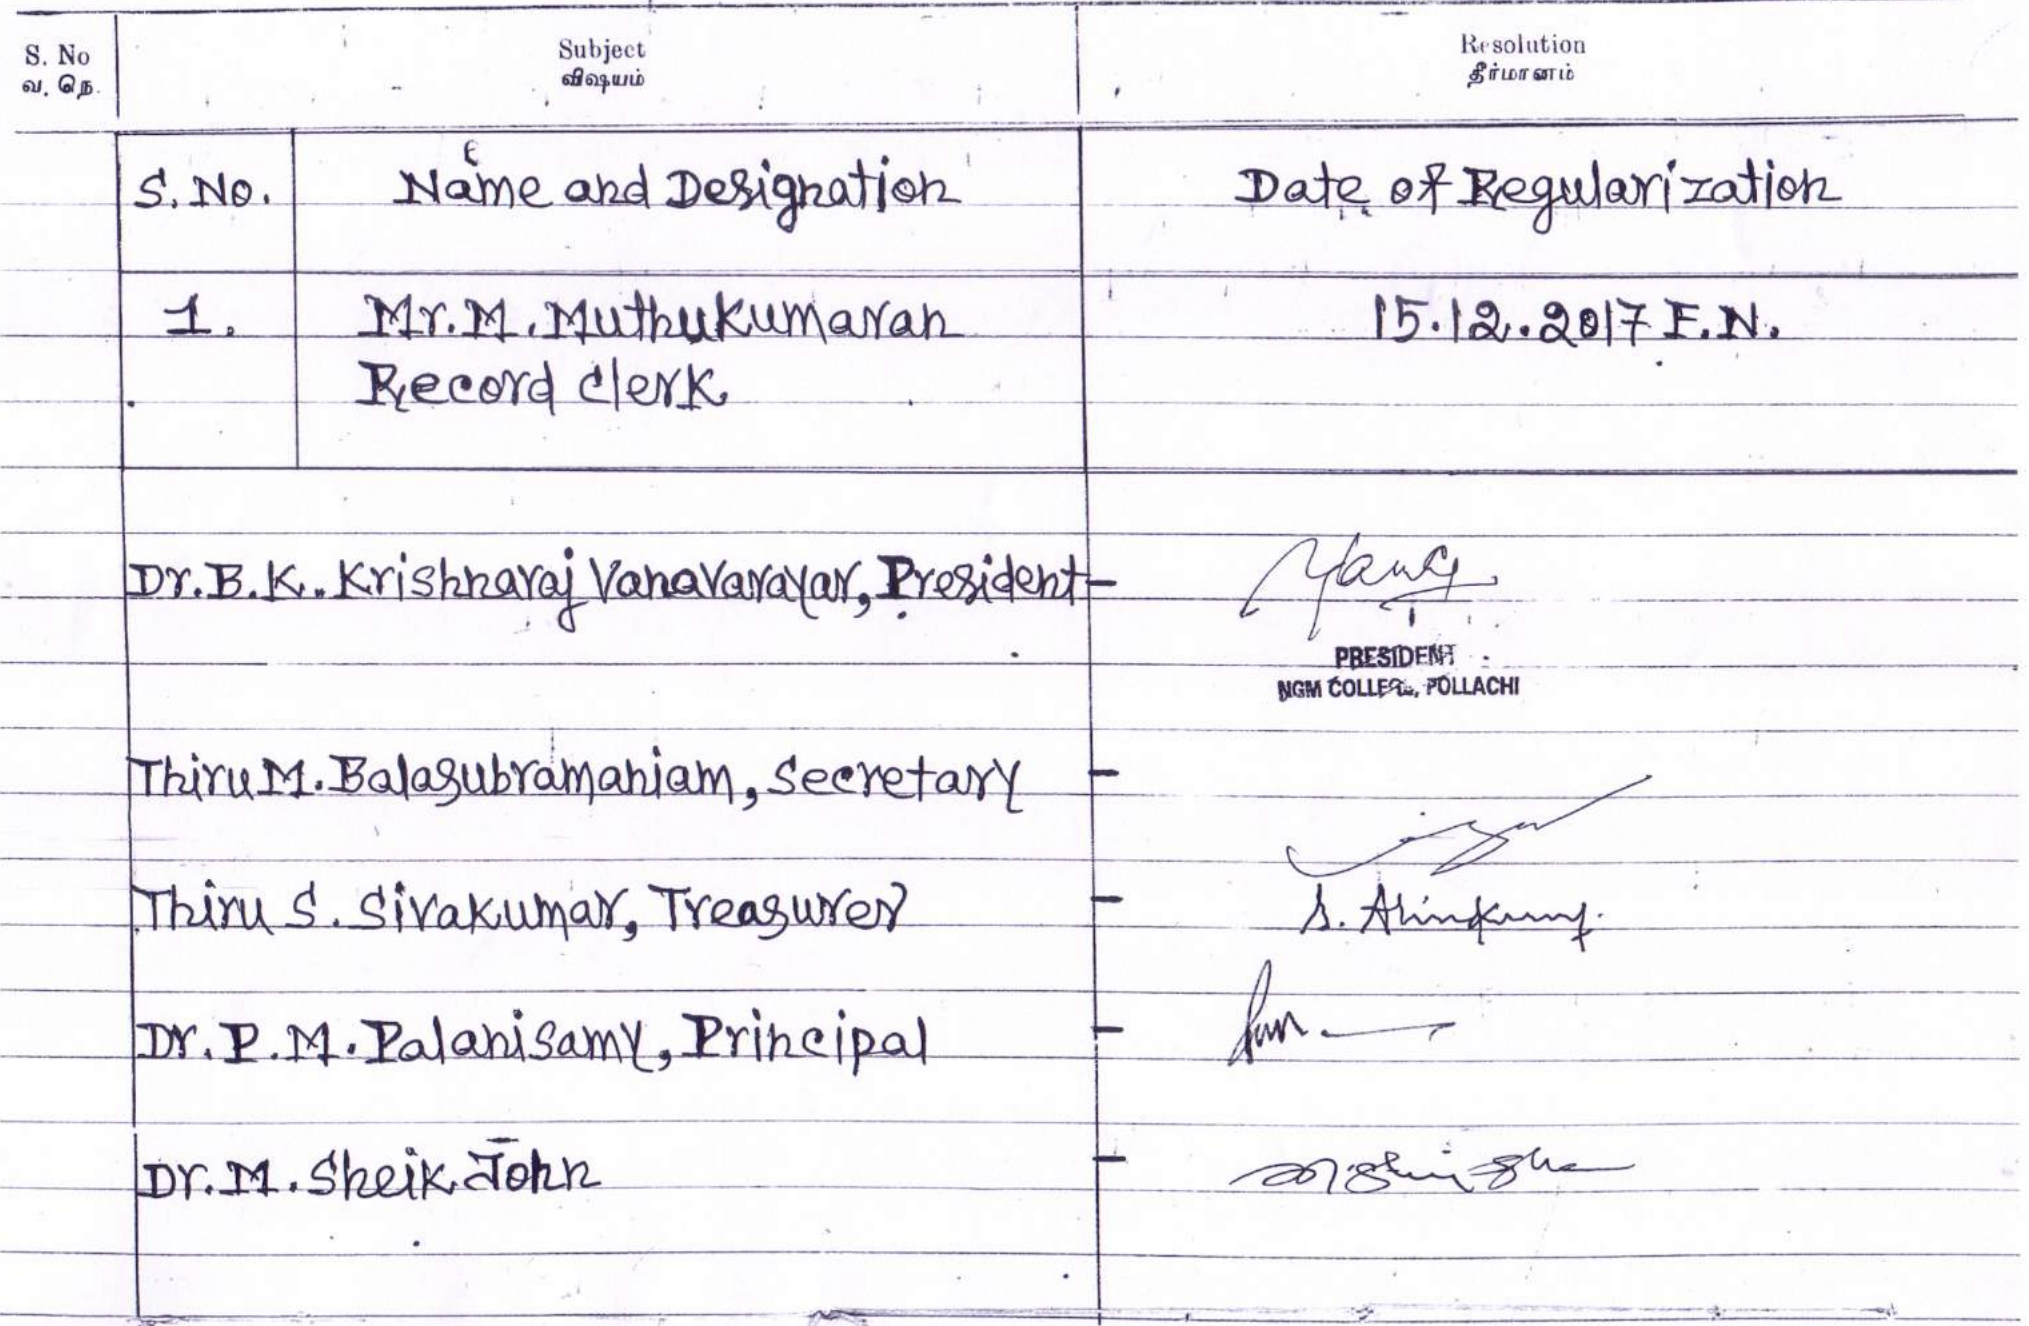 S. No Subject Resolution
வ. நெ. விஷயம் தீர்மானம்
S. No. Name and Designation Date of Regularization
1. Mr. M. Muthukumaran 15.12.2017 F.N.
Record Clerk
Dr. B. K. Krishnaraj Vanavarayar, President -
PRESIDENT
NGM COLLEGE, POLLACHI
Thiru M. Balasubramaniam, Secretary -
Thiru S. Sivakumar, Treasurer -
Dr. P. M. Palanisamy, Principal -
Dr. M. Sheik John -